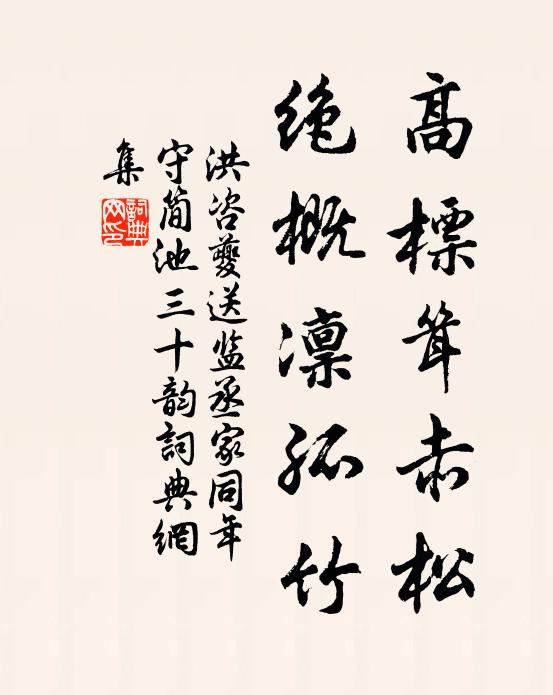 高標聳赤松
绝概凛孤竹
洪咨夔送监丞家同年
守简池三十韵詞典網
集
詞典
网印